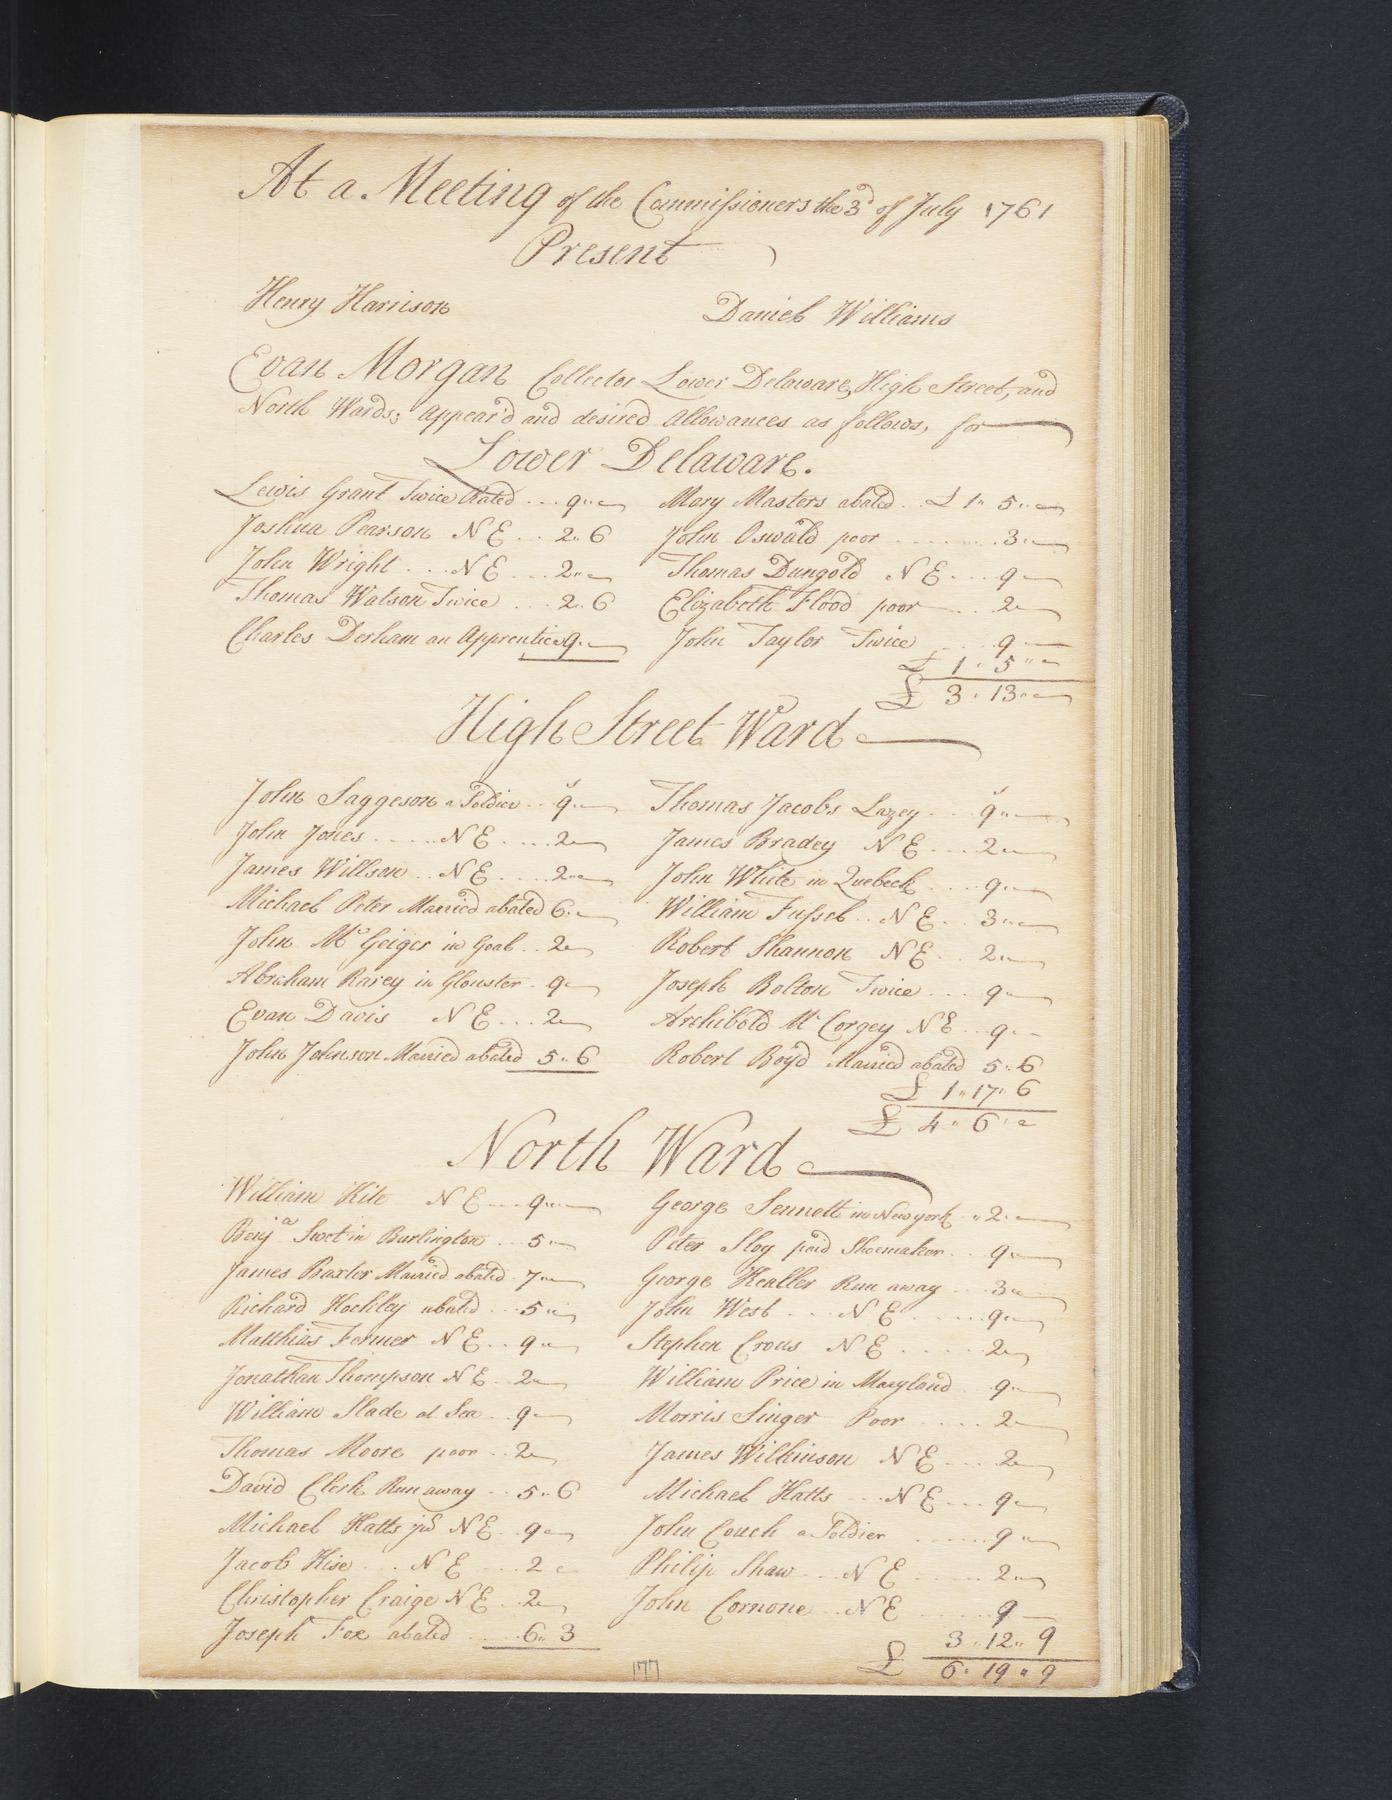 At a Meeting of the Commissioners the 3d of July 1761
Present
Henry Harrison Daniel Williams
Evan Morgan Collector Lower Delaware, High Street, and
North Wards; Appear'd and desired Allowances as follows, for
Lower Delaware.
Lewis Grant Twice Rated ... 9"— Mary Masters abated .. £ 1" 5"—
Joshua Pearson N E ... 2"6 John Oswald poor ........ 3"—
John Wright ... N E ... 2"— Thomas Dungold N E ... 9—
Thomas Watson Twice ... 2"6 Elizabeth Flood poor ... 2—
Charles Derham an Apprentice 9"— John Taylor Twice .... 9—
£ 1" 5"—
£ 3" 13"—
High Street Ward
John Saggeson a Soldier .. 9"— Thomas Jacobs Lazey ... 9"—
John Jones ..... N E .... 2— James Bradey N E ... 2"—
James Willson .. N E .... 2"— John White in Quebeck .... 9"—
Michael Peter Married abated 6"— William Fussel .. N E .. 3"—
John Mc Geiger in Goal .. 2— Robert Shannon N E .. 2"—
Abraham Raxey in Glouster . 9— Joseph Bolton Twice ... 9—
Evan Davis N E ... 2— Archibold Mc Corgey N E .. 9"—
John Johnson Married abated 5"6 Robert Boyd Married abated 5"6
£ 1"17"6
£ 4" 6"—
North Ward
William Kite N E ... 9"— George Sennett in Newyork .. 2"—
Benja Swet in Burlington ... 5"— Peter Sloy paid Shoemaker .. 9—
James Baxter Married abated . 7"— George Healler Run away ... 3"—
Richard Hockley abated ... 5"— John West ... N E ..... 9"—
Matthias Fermer N E .. 9"— Stephen Crous N E ..... 2—
Jonathan Thompson N E .. 2"— William Price in Maryland .. 9"—
William Slade at Sea .. 9— Morris Singer Poor .... 2—
Thomas Moore poor .. 2— James Wilkinson N E ... 2—
David Clerk Run away .. 5"6 Michael Hatts ... N E ... 9—
Michael Hatts jur N E .. 9"— John Couch a Soldier ...... 9"—
Jacob Hise ... N E .... 2— Philip Shaw ... N E ...... 2"—
Christopher Craige N E .. 2— John Cornone .. N E ...... 9—
Joseph Fox abated .... 6"3
3"12"9
£ 6"19"9
177